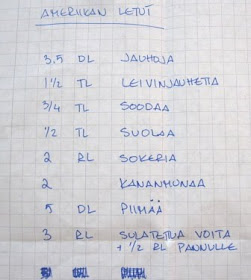 AMERIIKAN LETUT
3,5 DL JAUHOJA
1 1/2 TL LEIVINJAUHETTA
3/4 TL SOODAA
1/2 TL SUOLAA
2 RL SOKERIA
2 KANANMUNAA
5 DL PIIMÄÄ
3 RL SULATETTUA VOITA
+ 1/2 RL PANNULLE